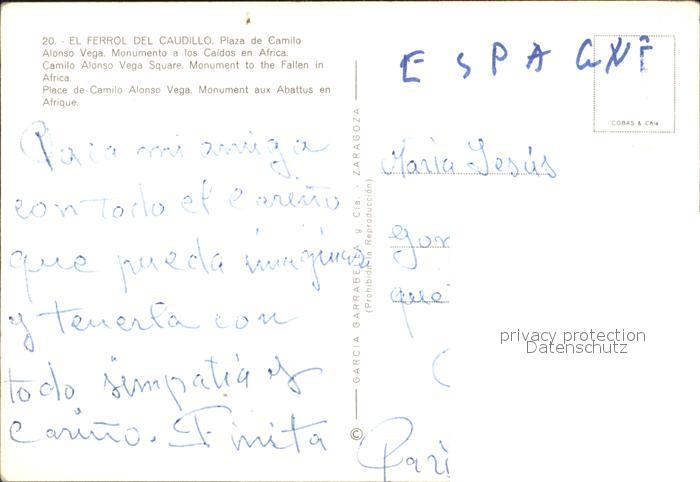 20. - EL FERROL DEL CAUDILLO. Plaza de Camilo
Alonso Vega. Monumento a los Caídos en Africa.
Camilo Alonso Vega Square. Monument to the Fallen in
Africa.
Place de Camilo Alonso Vega. Monument aux Abattus en
Afrique.
Para mi amiga
con todo el cariño
que pueda imaginar
y tenerla con
todo simpatía y
Cariño. Finita
© GARCIA GARRABELLA y Cía. - ZARAGOZA
(Prohibida la Reproducción)
ESPAGNE
COBAS & Cía
María Jesús
Gon
que
Pari
privacy protection
Datenschutz